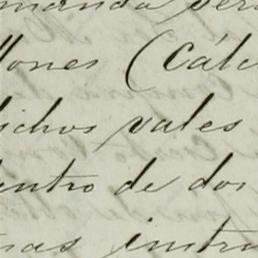 manda ver
llones (Cálc
dichos vales
dentro de dos
mas instru